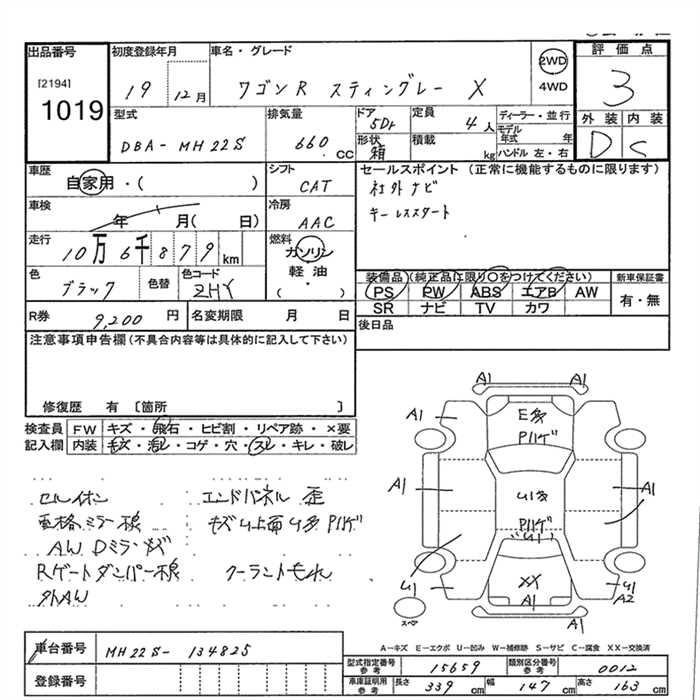 出品番号 初度登録年月 車名・グレード 評価点
[2194] 19 12月 ワゴンR スティングレー X 2WD 3
1019 4WD
型式 排気量 ドア 定員 ディーラー・並行 外装 内装
DBA-MH22S 660cc 5Dr 4人 モデル年式 年 D C
形状 積載 ハンドル 左・右
箱 kg
車歴 シフト セールスポイント (正常に機能するものに限ります)
自家用・( ) CAT 社外ナビ
車検 冷房 キーレススタート
年 月( 日) AAC
走行 燃料
10万6千879km ガソリン
色 色替 色コード 軽油
ブラック ZHY ・( )
装備品 (純正品に限り○をつけてください) 新車保証書
PS PW ABS エアB AW 有・無
SR ナビ TV カワ
R券 9,200円 名変期限 月 日 後日品
注意事項申告欄 (不具合内容等は具体的に記入して下さい)
修復歴 有 〔箇所 〕
検査員 FW キズ・飛石・ヒビ割・リペア跡・×要
記入欄 内装 キズ・汚レ・コゲ・穴・スレ・キレ・破レ
エンドパネル 歪
AW Dミラーキズ
Rゲートダンパー
クーラントもれ
外AW
A1 A1
A1 E多 A1
P1ハゲ
A1 U1多 A1
P1ハゲ
U1
U1 XX U1
A1 A2
スペア A1
A-キズ E-エクボ U-凹み W-補修跡 S-サビ C-腐食 XX-交換済
車台番号 MH22S-134825
登録番号
型式指定番号 参考 15659 類別区分番号 参考 0012
車庫証明用 参考 長さ 339cm 幅 147cm 高さ 163cm